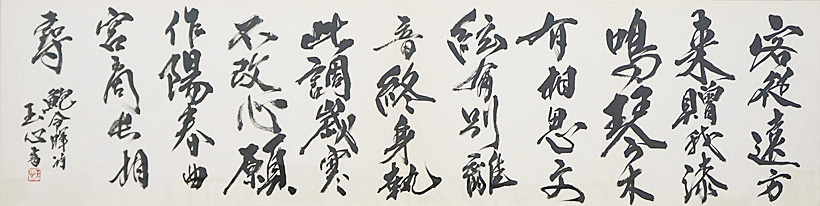 客從遠方
来贈我漆
鳴琴木
有相思文
絃有別離
音終身執
此調歳寒
不改心願
作陽春曲
宮商長相
尋
鮑令暉詩
玉心書